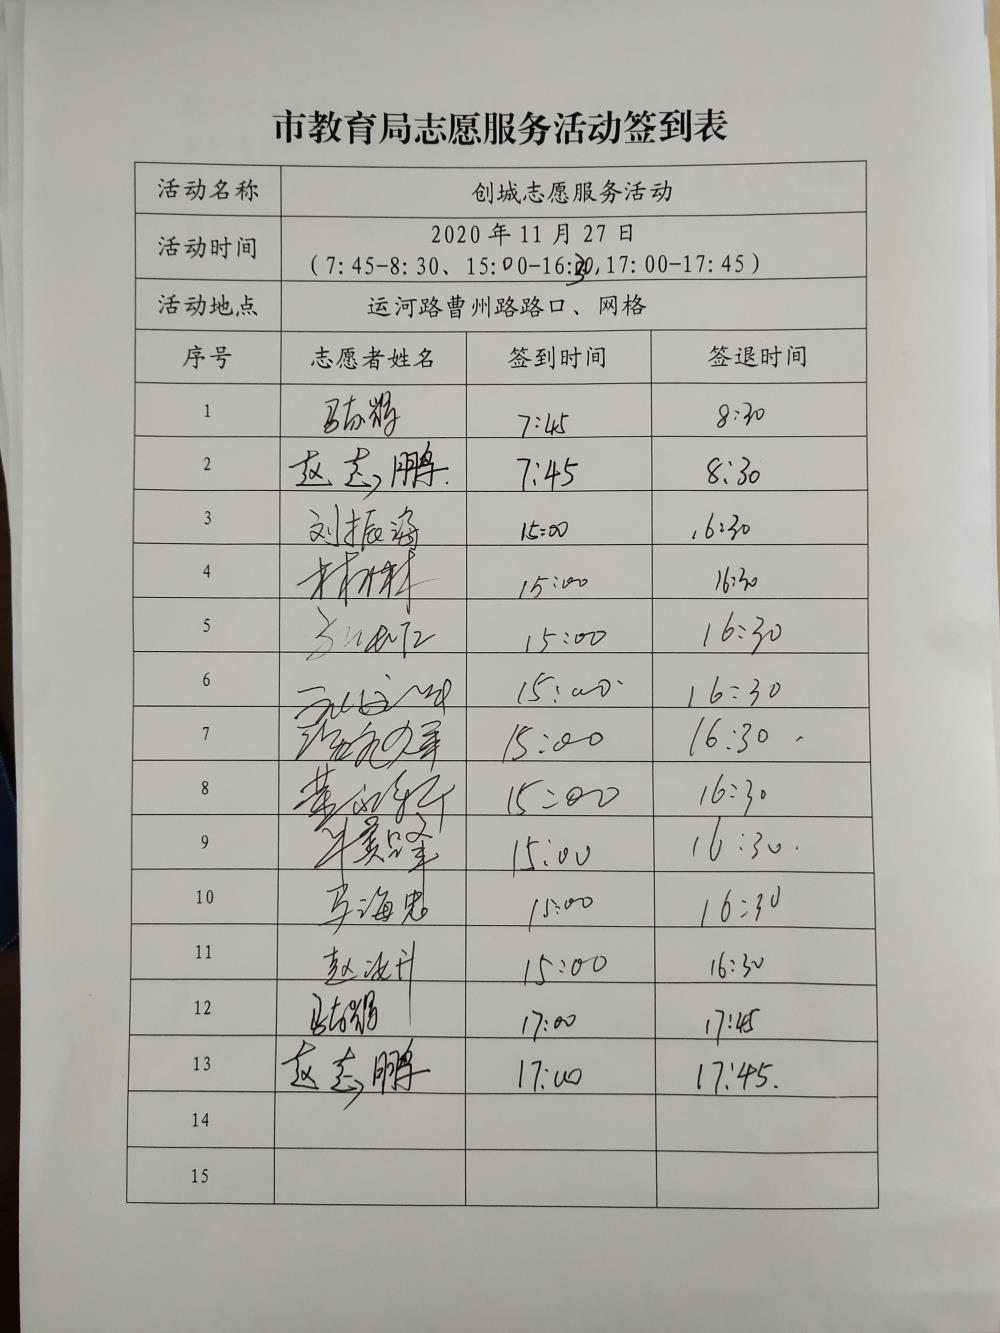 市教育局志愿服务活动签到表
活动名称 创城志愿服务活动
活动时间 2020年11月27日
(7:45-8:30、15:00-16:30,17:00-17:45)
活动地点 运河路曹州路路口、网格
序号 志愿者姓名 签到时间 签退时间
1 7:45 8:30
2 赵志鹏 7:45 8:30
3 刘振海 15:00 16:30
4 15:00 16:30
5 15:00 16:30
6 15:00 16:30
7 15:00 16:30
8 15:00 16:30
9 15:00 16:30
10 马海忠 15:00 16:30
11 15:00 16:30
12 17:00 17:45
13 赵志鹏 17:00 17:45
14
15